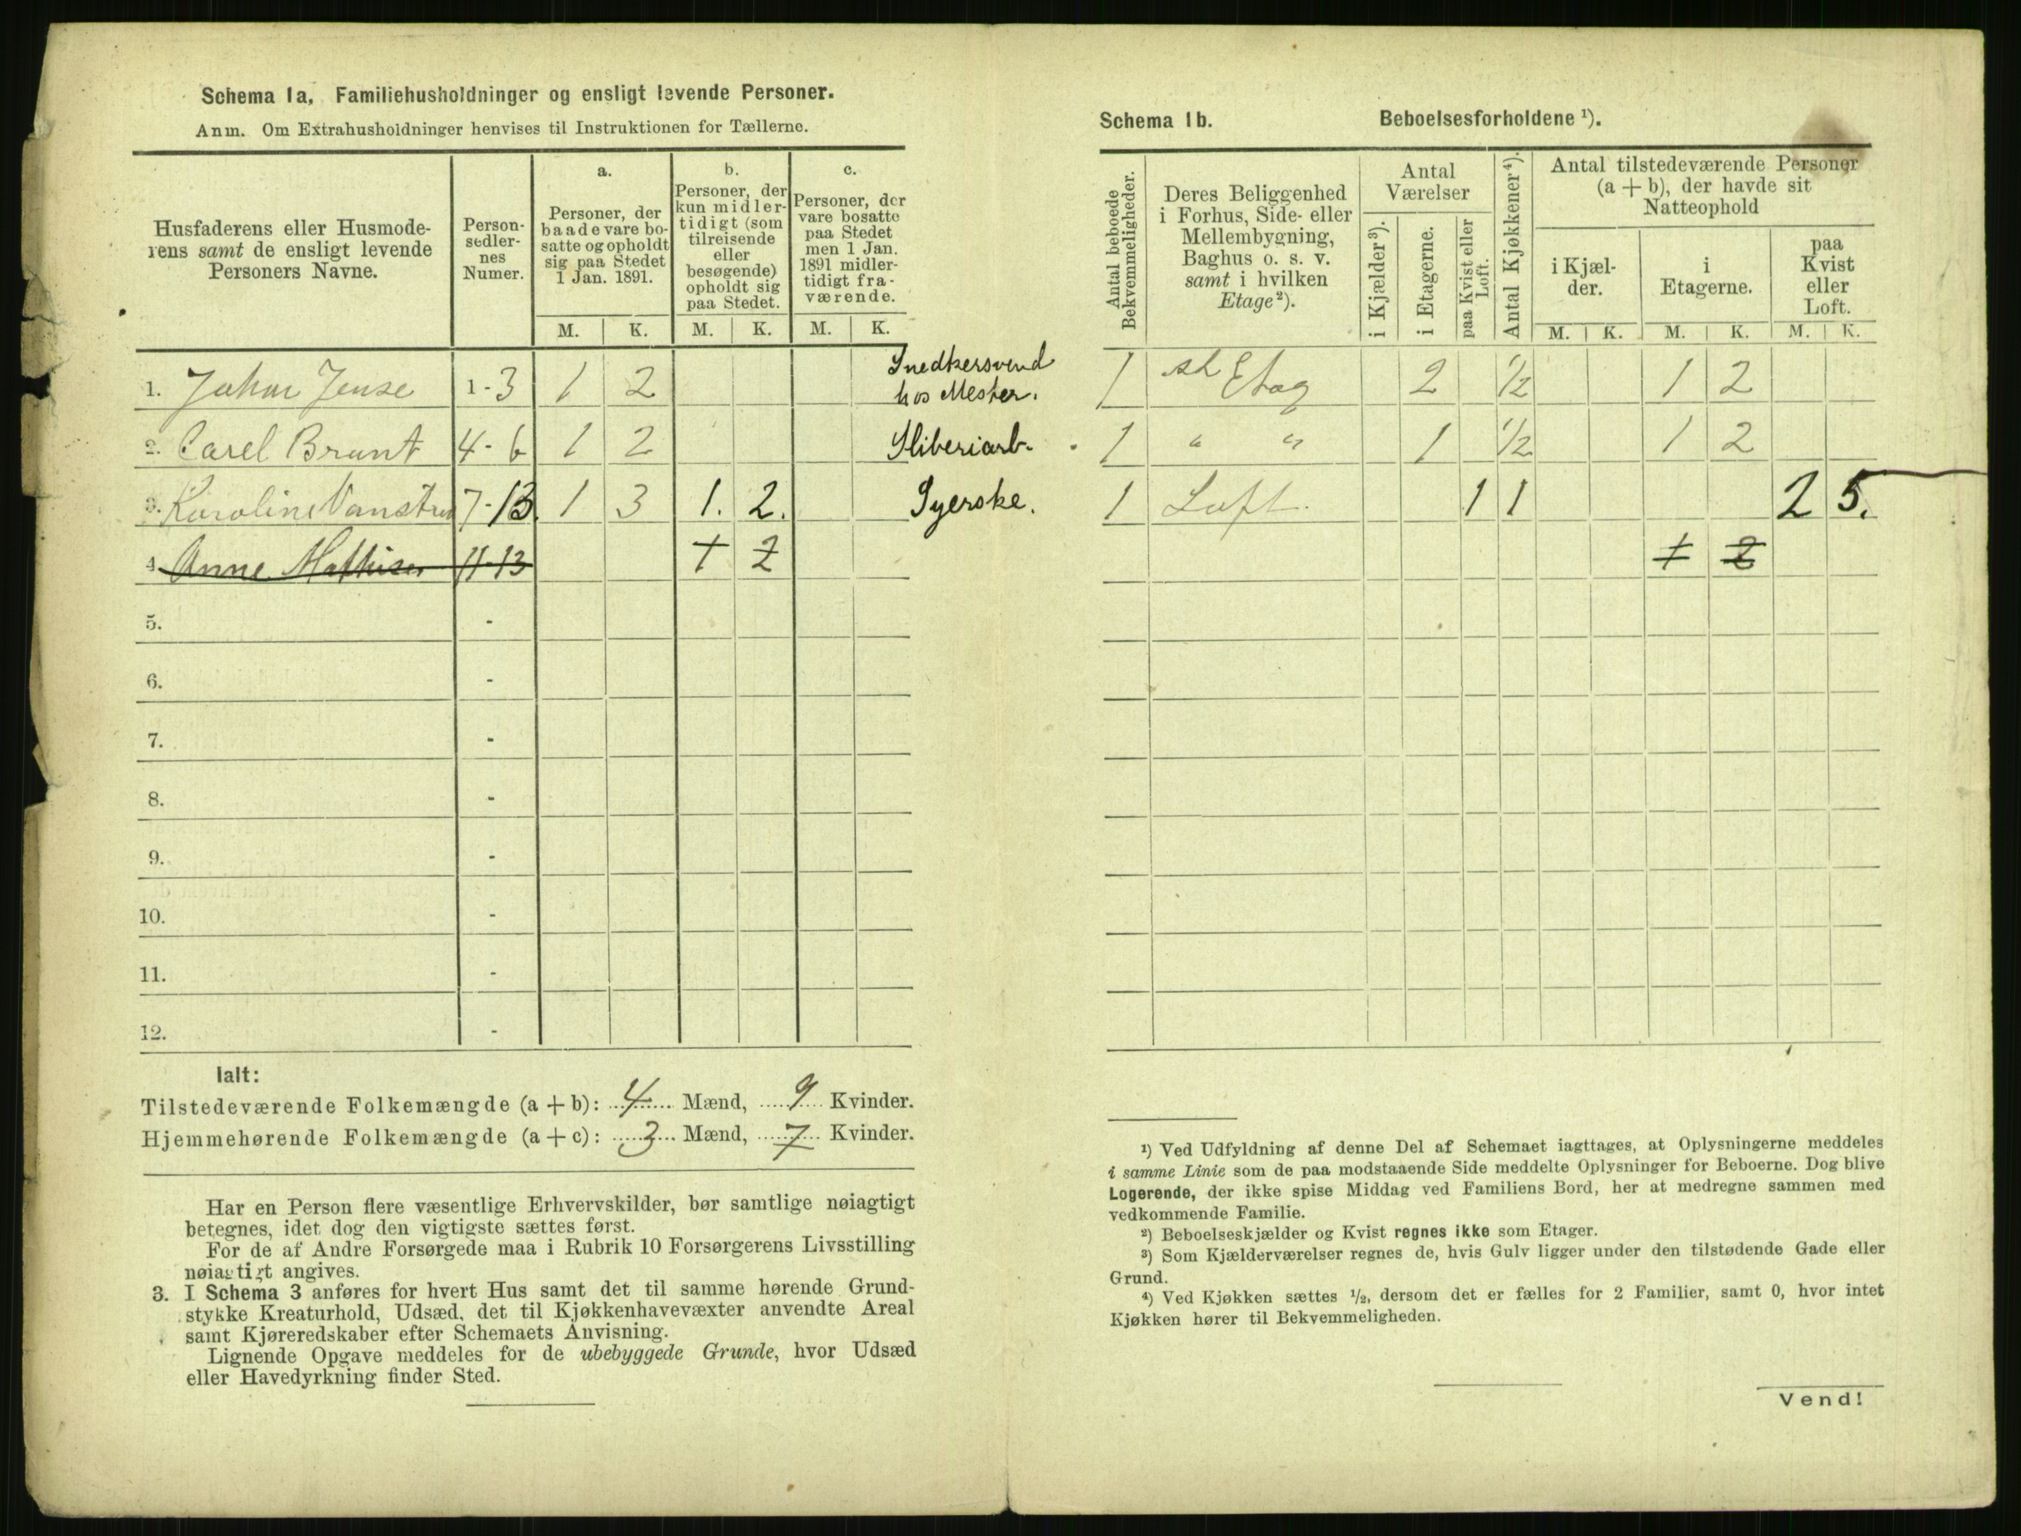 Schema 1a, Familiehusholdninger og ensligt levende Personer.
Anm. Om Extrahusholdninger henvises til Instruktionen for Tællerne.
Husfaderens eller Husmoderens samt de ensligt levende Personers Navne.
Personsedlernes Numer.
a.
Personer, der baade vare bosatte og opholdt sig paa Stedet 1 Jan. 1891.
b.
Personer, der kun midlertidigt (som tilreisende eller besøgende) opholdt sig paa Stedet.
c.
Personer, der vare bosatte paa Stedet men 1 Jan. 1891 midlertidigt fraværende.
M. K. M. K. M. K.
1. Johan Jense 1-3 1 2 Snedkersvend hos Mester.
2. Carel Brunt 4-6 1 2 Sliberiarb.
3. Karoline Vanstr 7-13. 1 3 1. 2. Syerske.
4. Anne Mathisen 11-13 1 2
5. -
6. -
7. -
8. -
9. -
10. -
11. -
12. -
Ialt:
Tilstedeværende Folkemængde (a + b): 4 Mænd, 9 Kvinder.
Hjemmehørende Folkemængde (a + c): 3 Mænd, 7 Kvinder.
Har en Person flere væsentlige Erhvervskilder, bør samtlige nøiagtigt
betegnes, idet dog den vigtigste sættes først.
For de af Andre Forsørgede maa i Rubrik 10 Forsørgerens Livsstilling
nøiagtigt angives.
3. I Schema 3 anføres for hvert Hus samt det til samme hørende Grund-
stykke Kreaturhold, Udsæd, det til Kjøkkenhavevæxter anvendte Areal
samt Kjøreredskaber efter Schemaets Anvisning.
Lignende Opgave meddeles for de ubebyggede Grunde, hvor Udsæd
eller Havedyrkning finder Sted.
Schema 1b. Beboelsesforholdene ¹).
Antal beboede Bekvemmeligheder.
Deres Beliggenhed i Forhus, Side- eller Mellembygning, Baghus o. s. v. samt i hvilken Etage²).
Antal Værelser
i Kjælder³).
i Etagerne.
paa Kvist eller Loft.
Antal Kjøkkener⁴).
Antal tilstedeværende Personer (a + b), der havde sit Natteophold
i Kjælder.
i Etagerne.
paa Kvist eller Loft.
M. K. M. K. M. K.
1 st Etag 2 1/2 1 2
1 " " 1 1/2 1 2
1 Loft. 1 1 2 5.
1 2
¹) Ved Udfyldning af denne Del af Schemaet iagttages, at Oplysningerne meddeles
i samme Linie som de paa modstaaende Side meddelte Oplysninger for Beboerne. Dog blive
Logerende, der ikke spise Middag ved Familiens Bord, her at medregne sammen med
vedkommende Familie.
²) Beboelseskjælder og Kvist regnes ikke som Etager.
³) Som Kjælderværelser regnes de, hvis Gulv ligger under den tilstødende Gade eller
Grund.
⁴) Ved Kjøkken sættes ¹/₂, dersom det er fælles for 2 Familier, samt 0, hvor intet
Kjøkken hører til Bekvemmeligheden.
Vend!